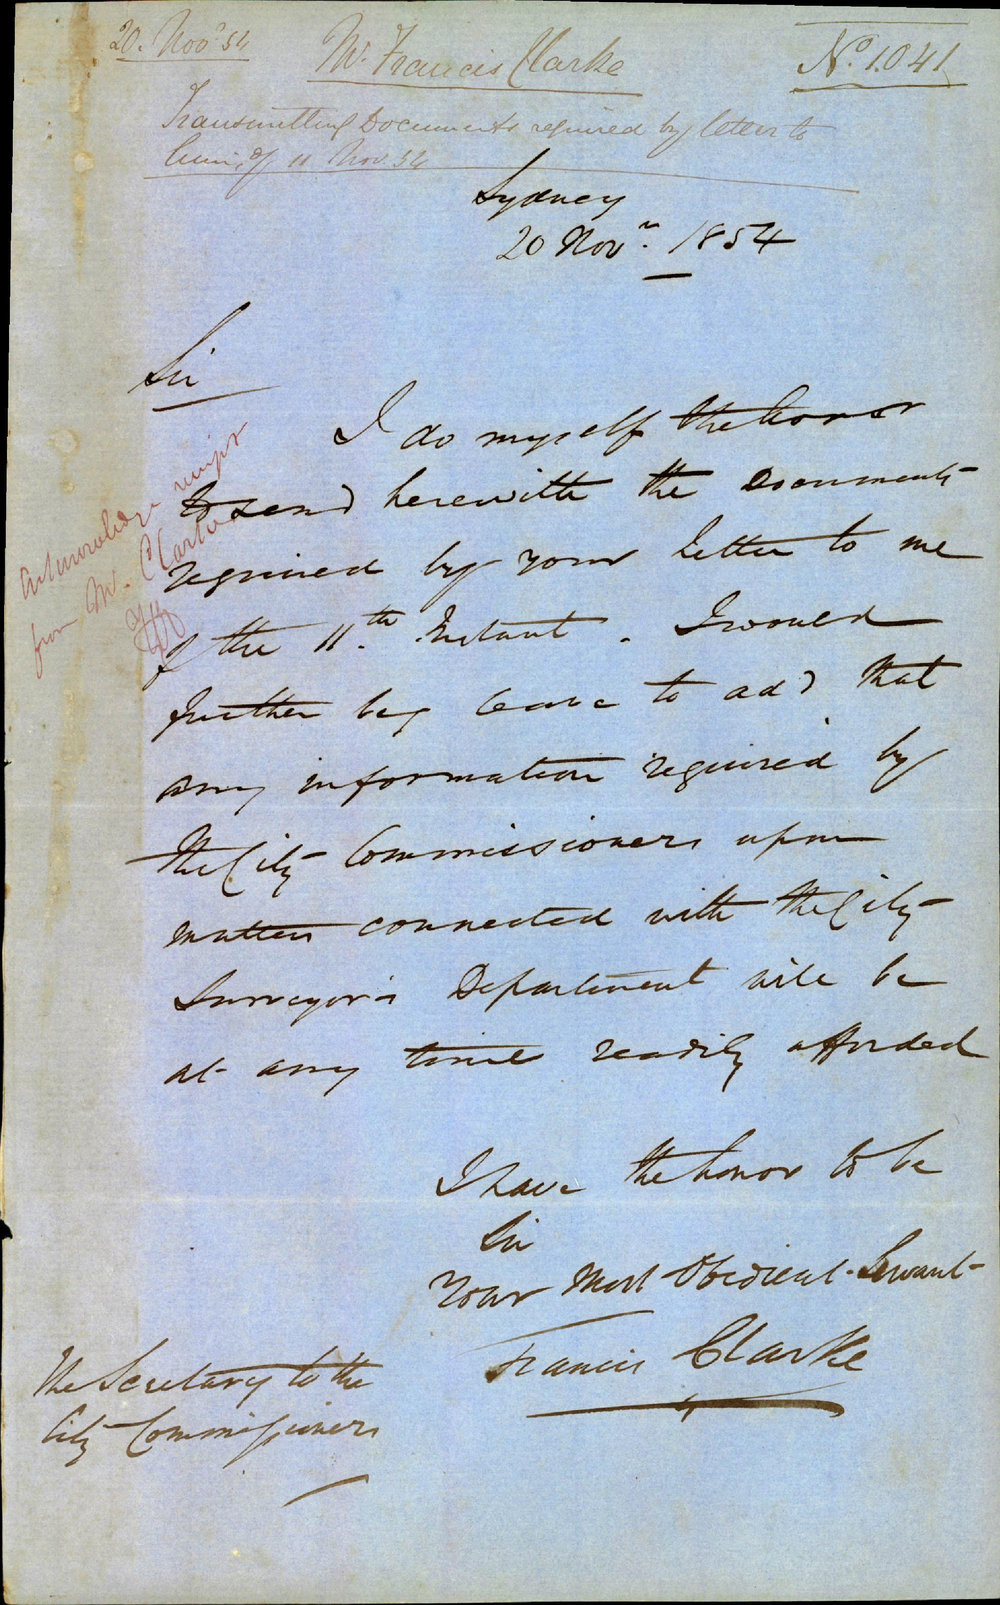 20. Novr 54
Mr. Francis Clarke
No. 1041
Transmitting Documents required by letter to
him, of 11 Nov. 54
Sydney
20 Novr. 1854
Sir
I do myself the honor
to send herewith the Documents
required by your letter to me
of the 11th. Instant. I would
further beg leave to add that
any information required by
the City Commissioners upon
matters connected with the City
Surveyor's Department will be
at any time readily afforded
Acknowledge receipt
from Mr. Clarke
I have the honor to be
Sir
Your Most Obedient Servant
Francis Clarke
The Secretary to the
City Commissioners